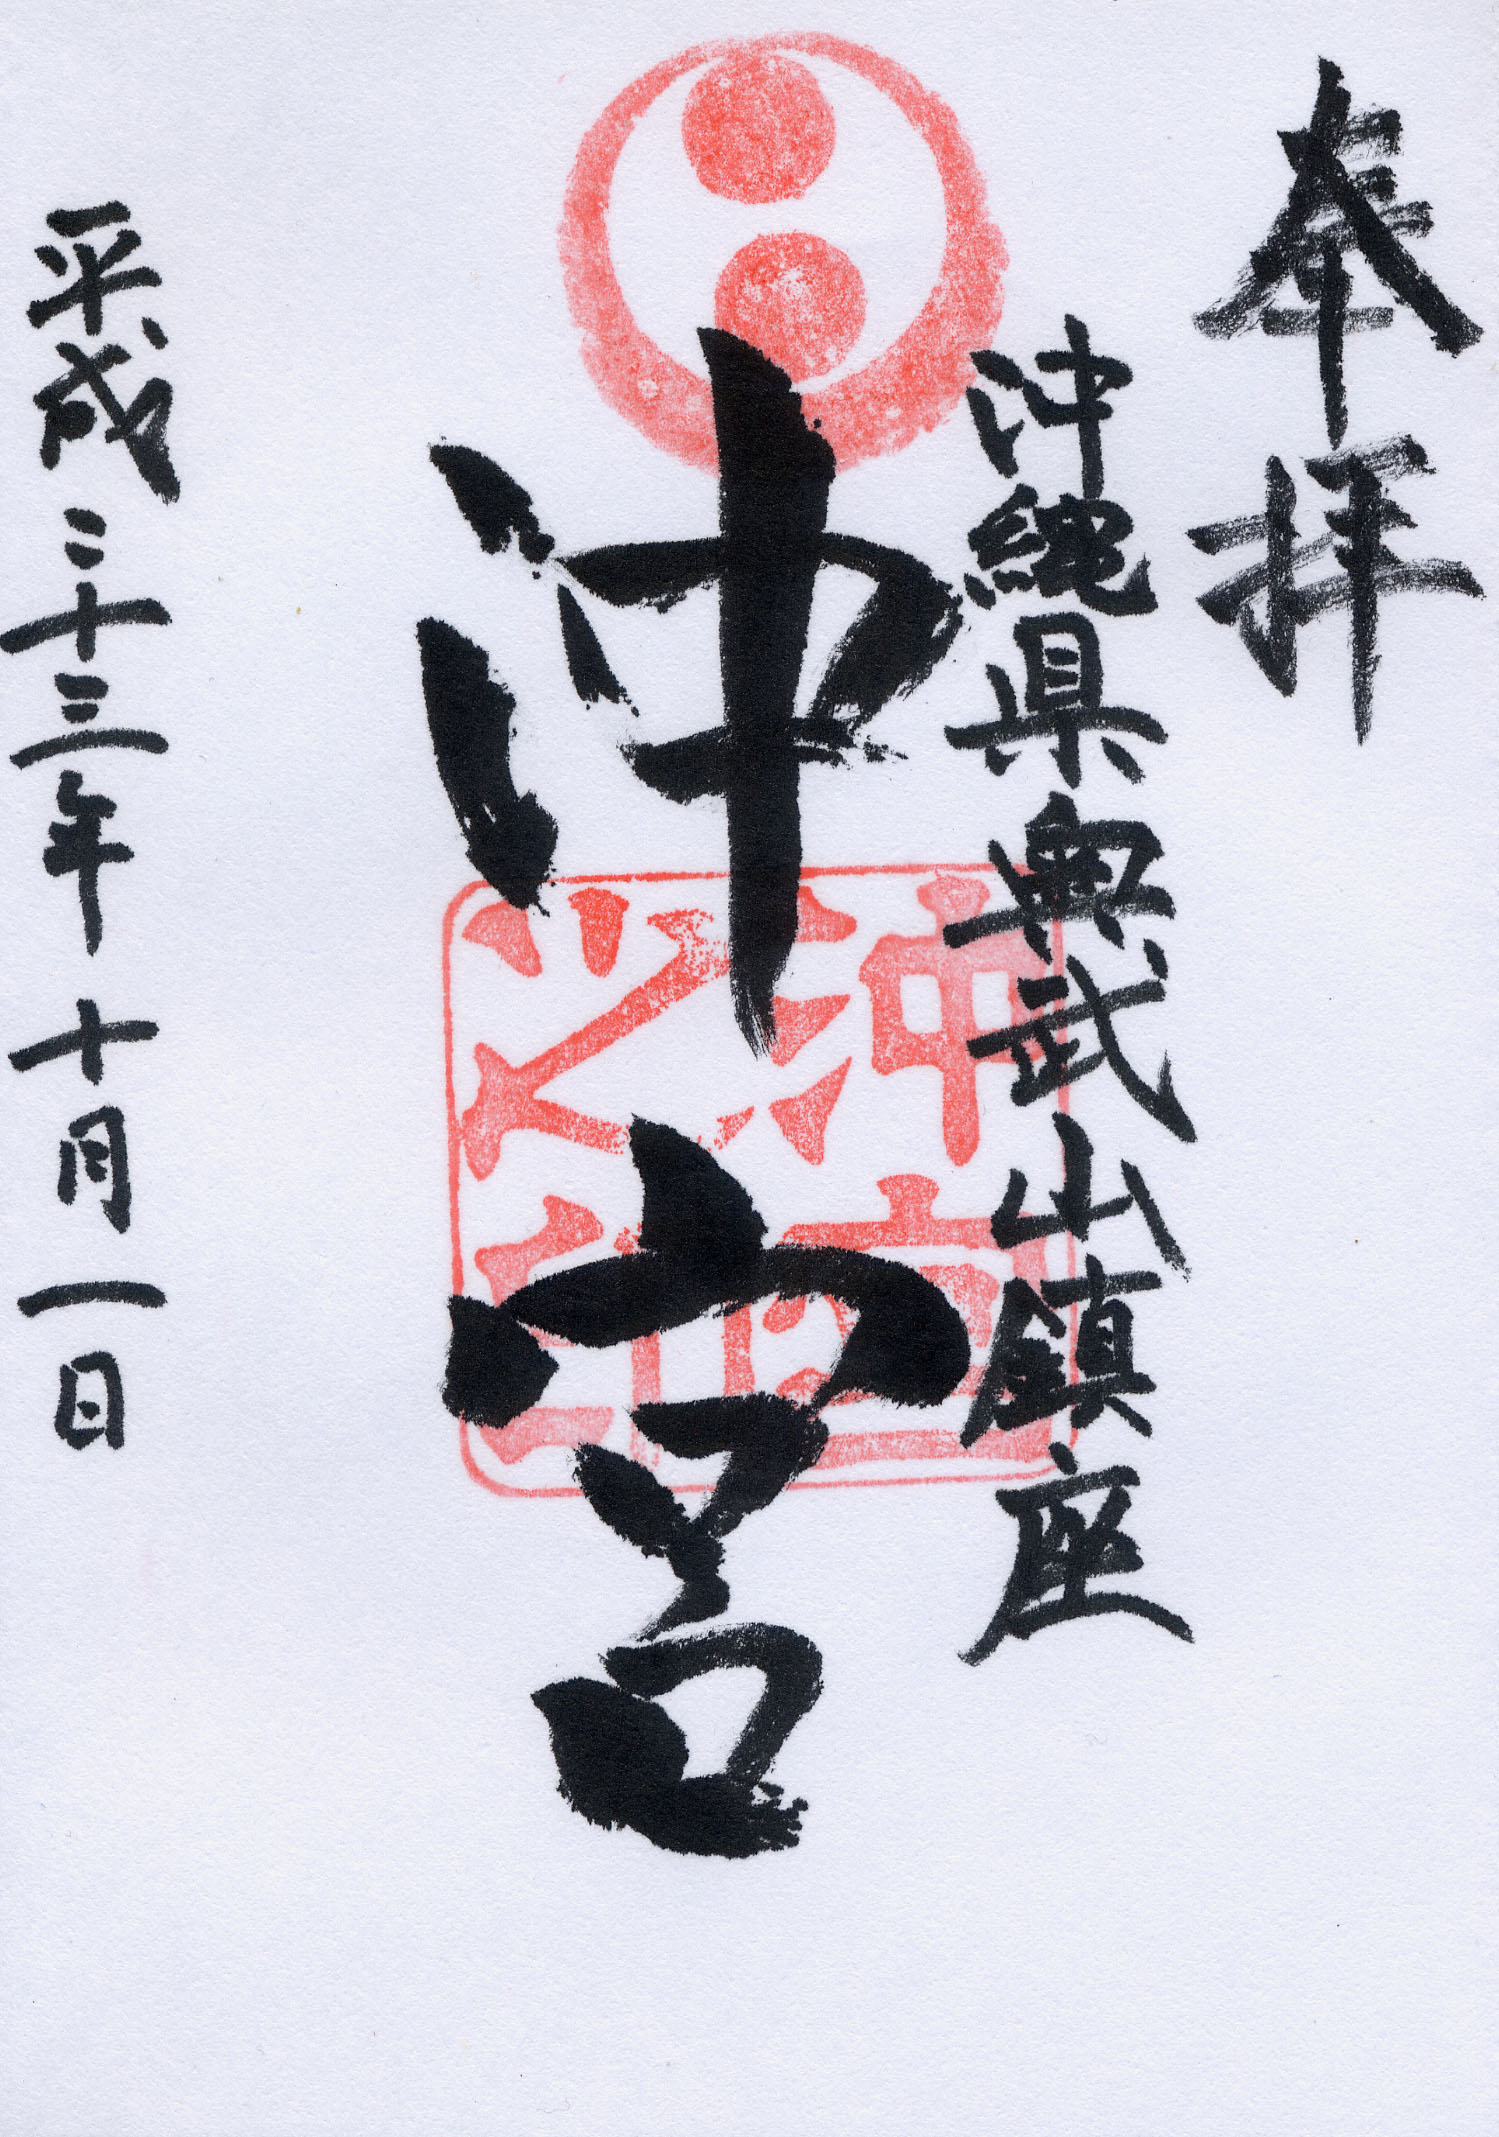 奉拝
沖縄県奥武山鎮座
沖宮
沖宮之印
平成二十三年十月一日